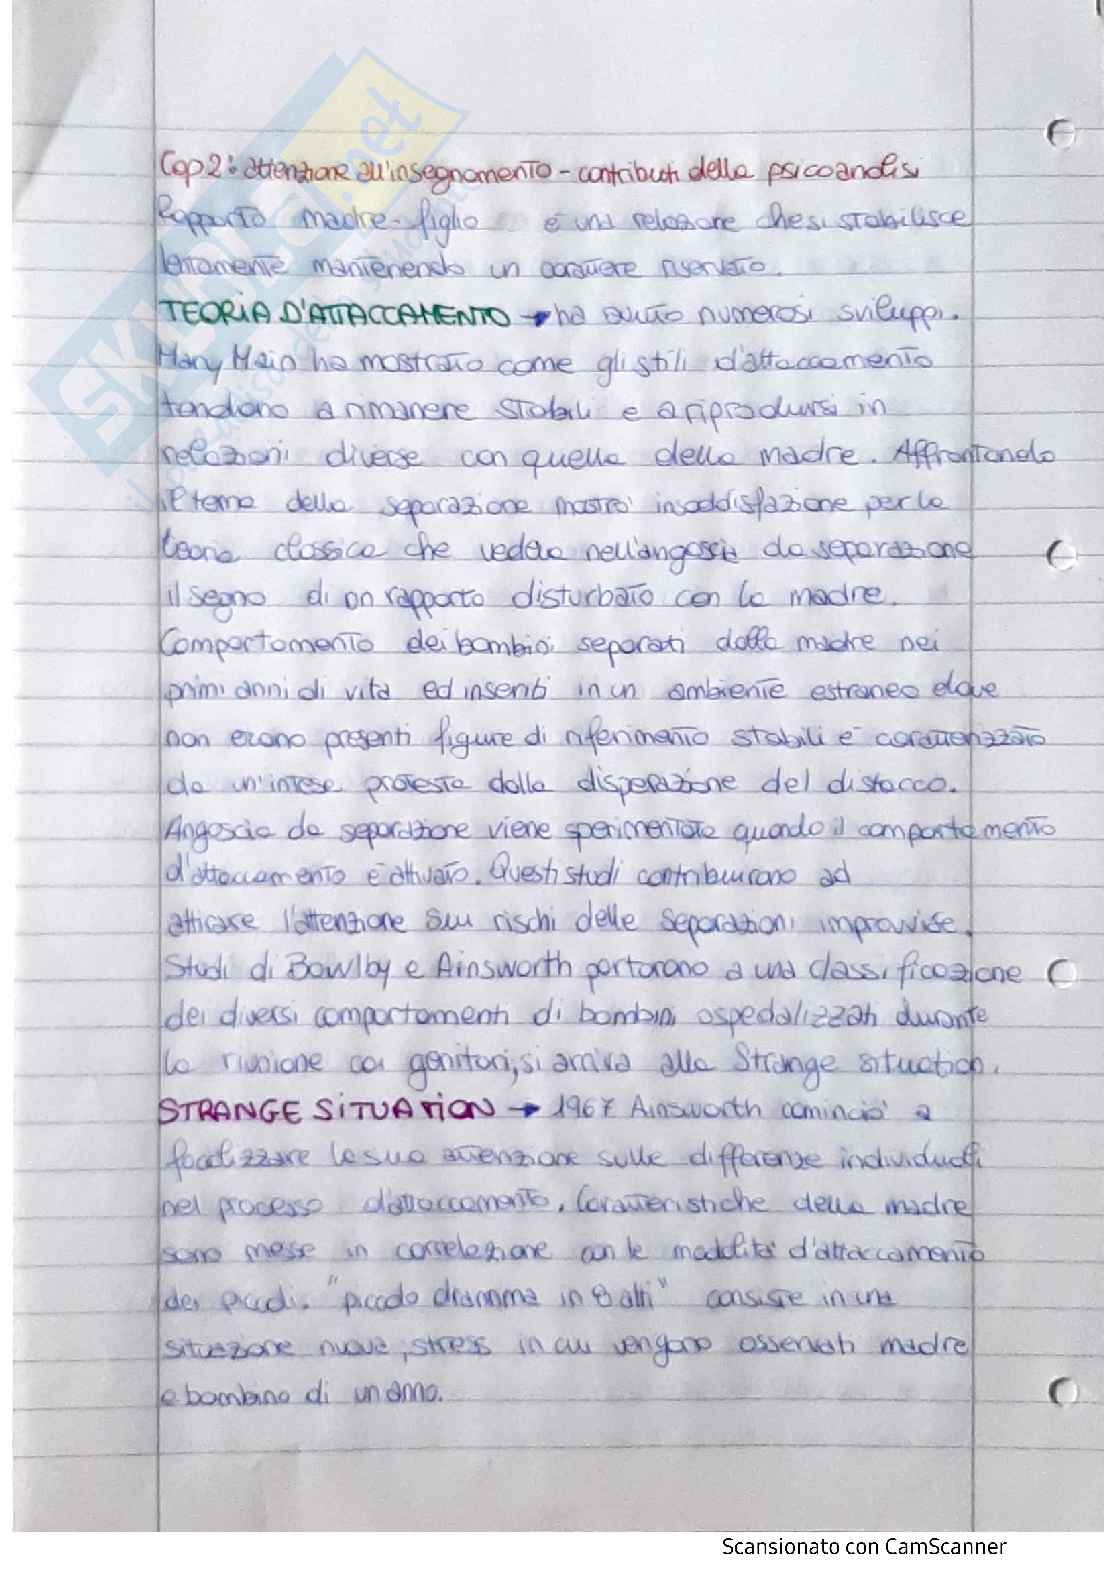 Cap 2: attenzione all'insegnamento - contributi della psicoanalisi
Rapporto madre-figlio è una relazione che si stabilisce
lentamente mantenendo un carattere riservato.
TEORIA D'ATTACCAMENTO → ha avuto numerosi sviluppi.
Mary Main ha mostrato come gli stili d'attaccamento
tendano a rimanere stabili e a riprodursi in
relazioni diverse con quella della madre. Affrontando
il tema della separazione mostrò insoddisfazione per la
teoria classica che vedeva nell'angoscia da separazione
il segno di un rapporto disturbato con la madre.
Comportamento dei bambini separati dalla madre nei
primi anni di vita ed inseriti in un ambiente estraneo dove
non erano presenti figure di riferimento stabili è caratterizzato
da un'intesa protesta dalla disperazione del distacco.
Angoscia da separazione viene sperimentata quando il comportamento
d'attaccamento è attivato. Questi studi contribuirono ad
attirare l'attenzione sui rischi delle separazioni improvvise.
Studi di Bowlby e Ainsworth portarono a una classificazione
dei diversi comportamenti di bambini ospedalizzati durante
la riunione coi genitori, si arriva alla Strange situation.
STRANGE SITUATION → 1967 Ainsworth cominciò a
focalizzare la sua attenzione sulle differenze individuali
nel processo d'attaccamento. Caratteristiche della madre
sono messe in correlazione con le modalità d'attaccamento
dei piccoli. "piccolo dramma in 8 atti" consiste in una
situazione nuova, stress in cui vengono osservati madre
e bambino di un anno.
Scansionato con CamScanner